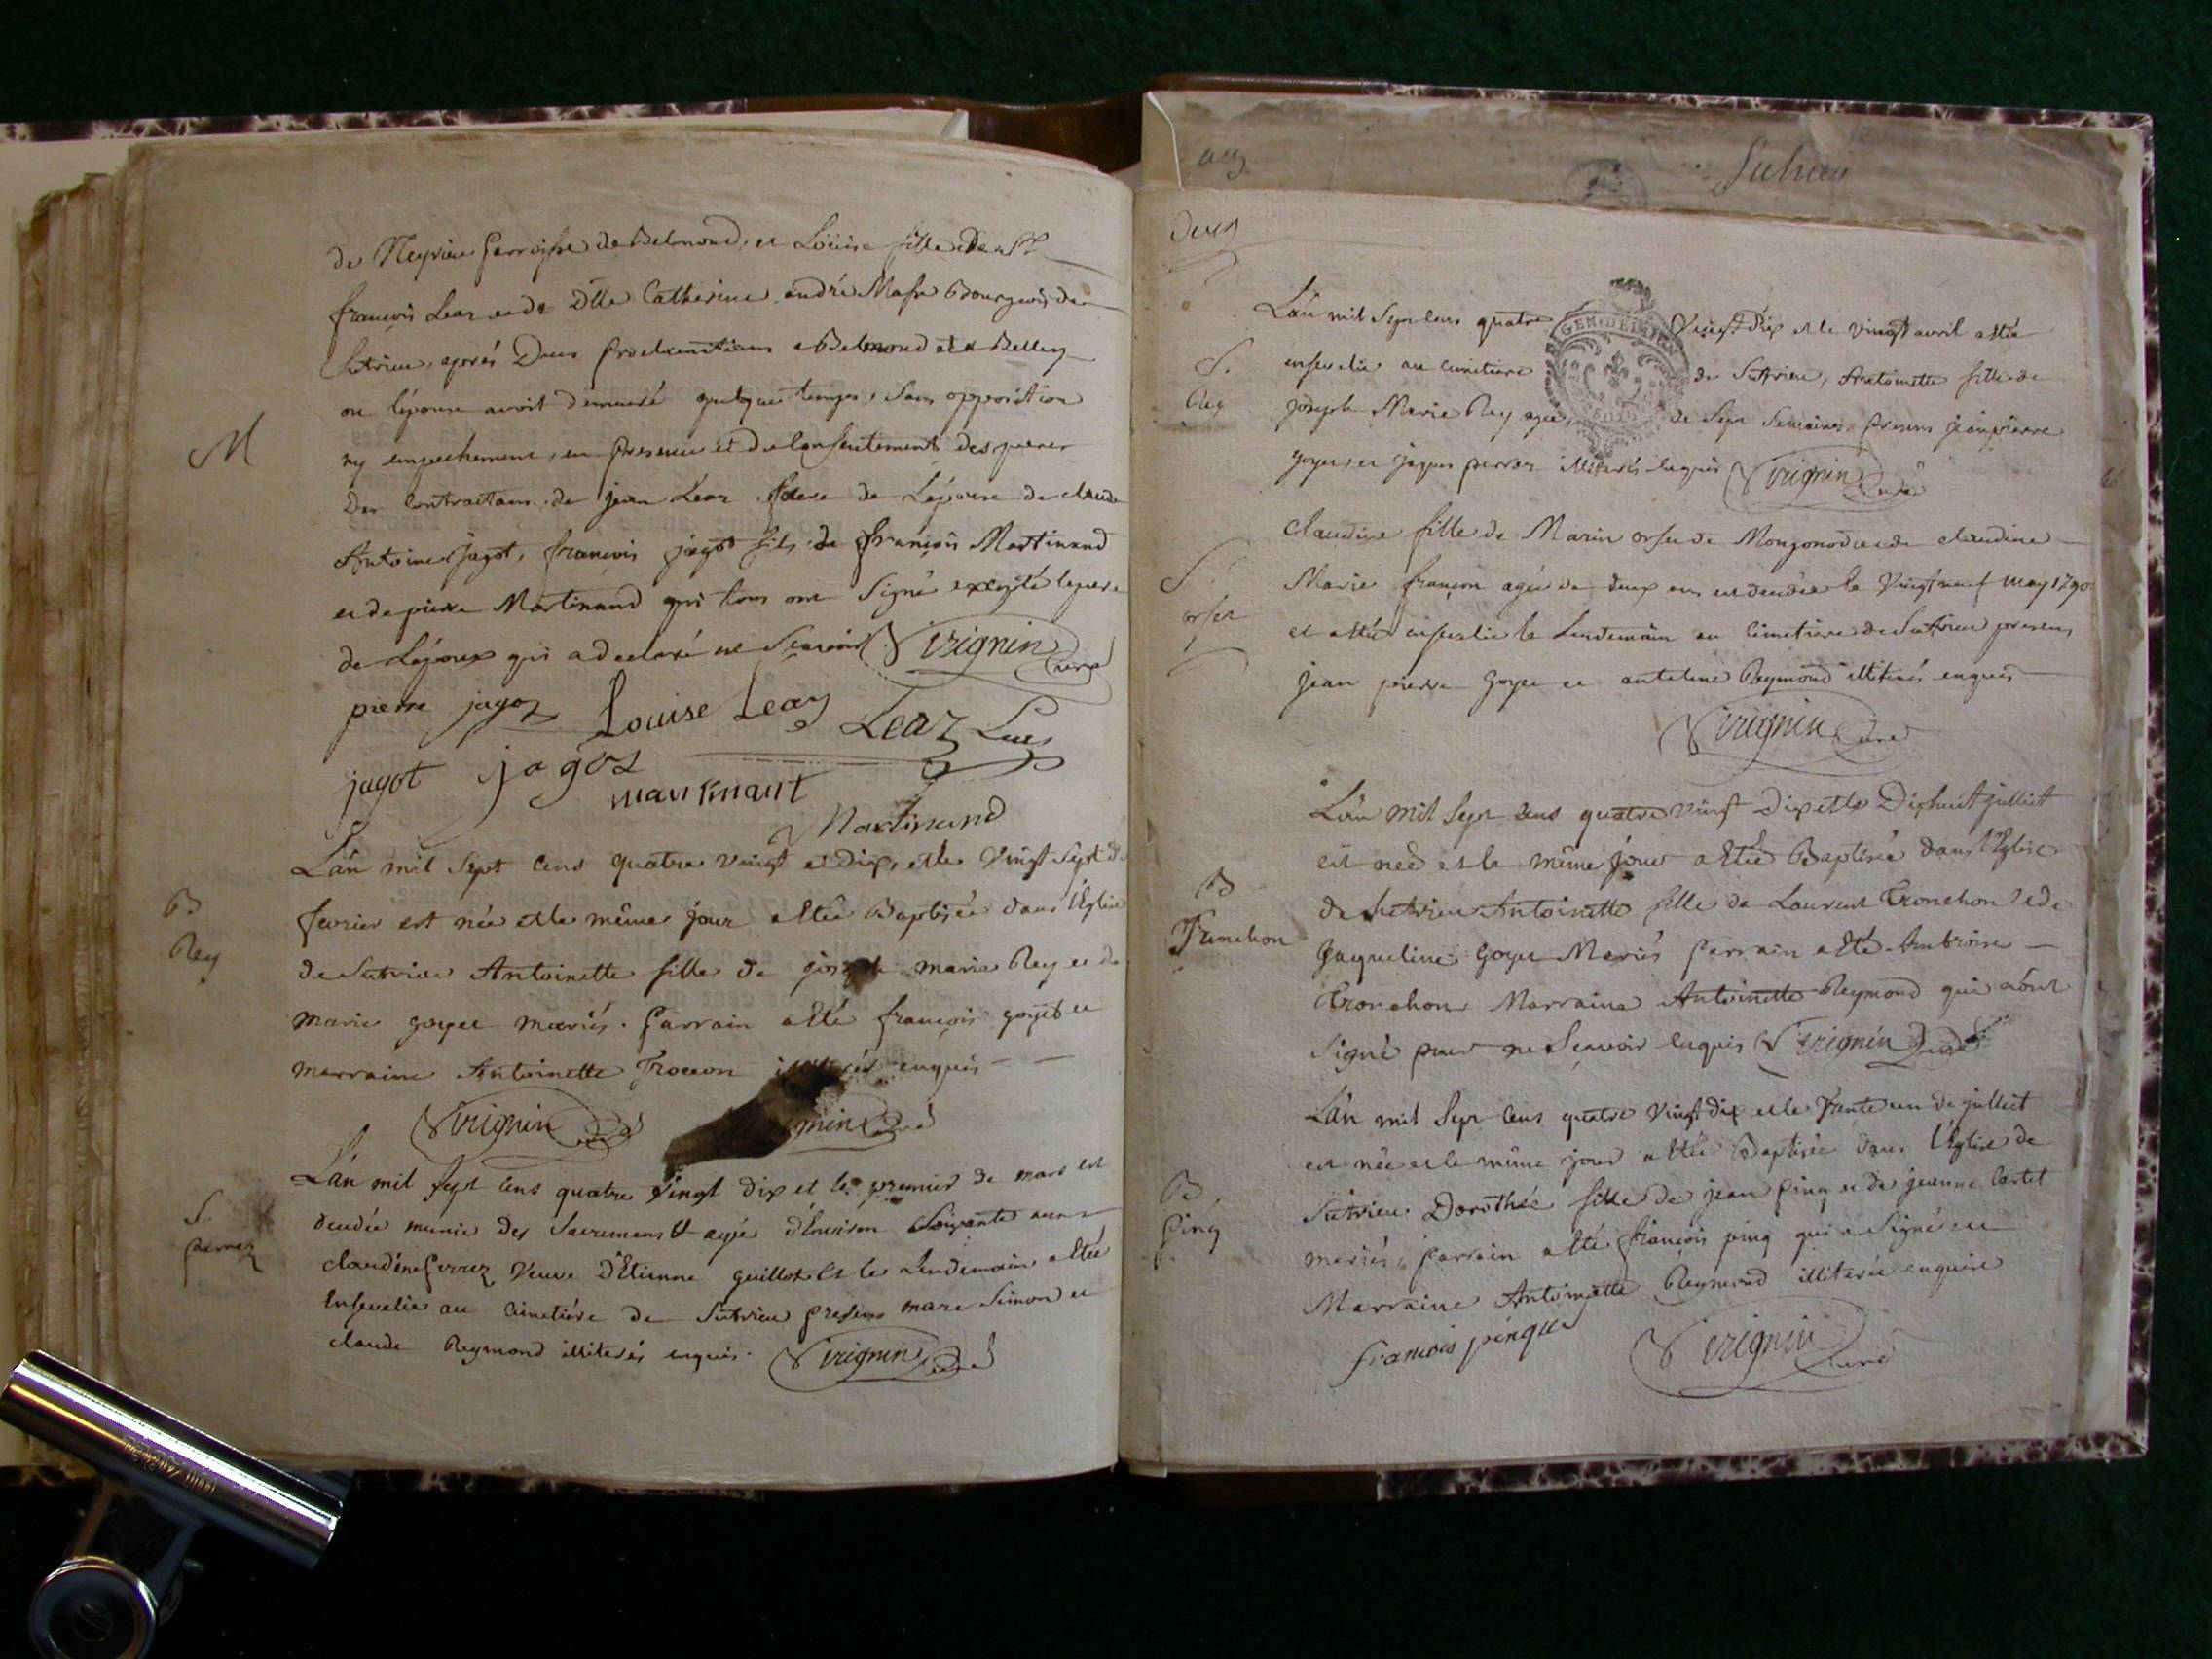 de Neyrieu parroisse de Belmond, et Loüise fille de Sr
francois Lear et de Dlle Catherine andré Masse Bourgeois de
Sutrieu, aprés Deux Proclamations a Belmond et a Belley
ou lépouse avoit demeuré quelque temps, sans opposition
ny empechement, en presence et du consentement des peres
des contractans, de jean Lear frere de Lépouse de claude
Antoine jagot, francois jagot fils de françois Martinand
et de pierre Martinand qui tous ont signé excepté le pere
de Lépoux qui a declaré ne scavoir Virignin Curé
pierre jagoz Louise Lear Lear
jagot jagoz
martinant
Martinand
M
L'an mil sept cens quatre vingt et dix, et le vingt sept de
B
fevrier est née et le même jour a été Baptisée dans l'Eglise
Rey
de Sutrieu Antoinette fille de joseph marie Rey et de
marie goyet mariés. Parrain a été françois goyet et
marraine Antoinette Trocon enquis
Virignin Curé gnin Curé
L'an mil sept cens quatre vingt dix et le premier de mars est
S.
decedée munie des sacremens agée d'Environ Soixante ans
perrez
claudine Perrez veuve d'Etienne guillot et le Lendemain a été
Ensevelie au cimetiére de Sutrieu presens marc Simon et
claude Reymond illiterés enquis. Virignin Curé
Sutrieu
Deux
L'an mil sept cens quatre vingt Dix et le vingt avril a été
GEN. DE DIJON
S.
ensevelie au cimetiere de Sutrieu, Antoinette fille de
Rey
joseph Marie Rey agée de sept semaines, presens jean pierre
goyet et jaques perrez illiterés enquis Virignin Curé
claudine fille de Marin orset de Mongonod et de claudine
S.
Marie françon agée de deux ans est decedée le vingt neuf may 1790
orset
et a été ensevelie le Lendemain au cimetiere de Sutrieu presens
jean pierre goyet et antelme Reymond illiterés enquis
Virignin Curé
L'an mil sept cens quatre vingt Dix et le Dixhuit julliet
est née et le même jour a été Baptisée dans l'Eglise
B
de Sutrieu Antoinette fille de Laurent Tronchon et de
Tronchon
jaqueline goyet Mariés parrain a été Ambroise
Tronchon Marraine Antoinette Reymond qui n'ont
signé pour ne scavoir enquis Virignin Curé
L'an mil sept cens quatre vingt dix et le Trante un de julliet
est née et le même jour a été Baptisée dans l'Eglise de
B.
Sutrieu Dorothée fille de jean pinq et de jeanne Cartet
Pinq
mariés, parrain a été françois pinq qui a signé et
Marraine Antoinette Reymond illiterée enquise
francois pinque Virignin Curé